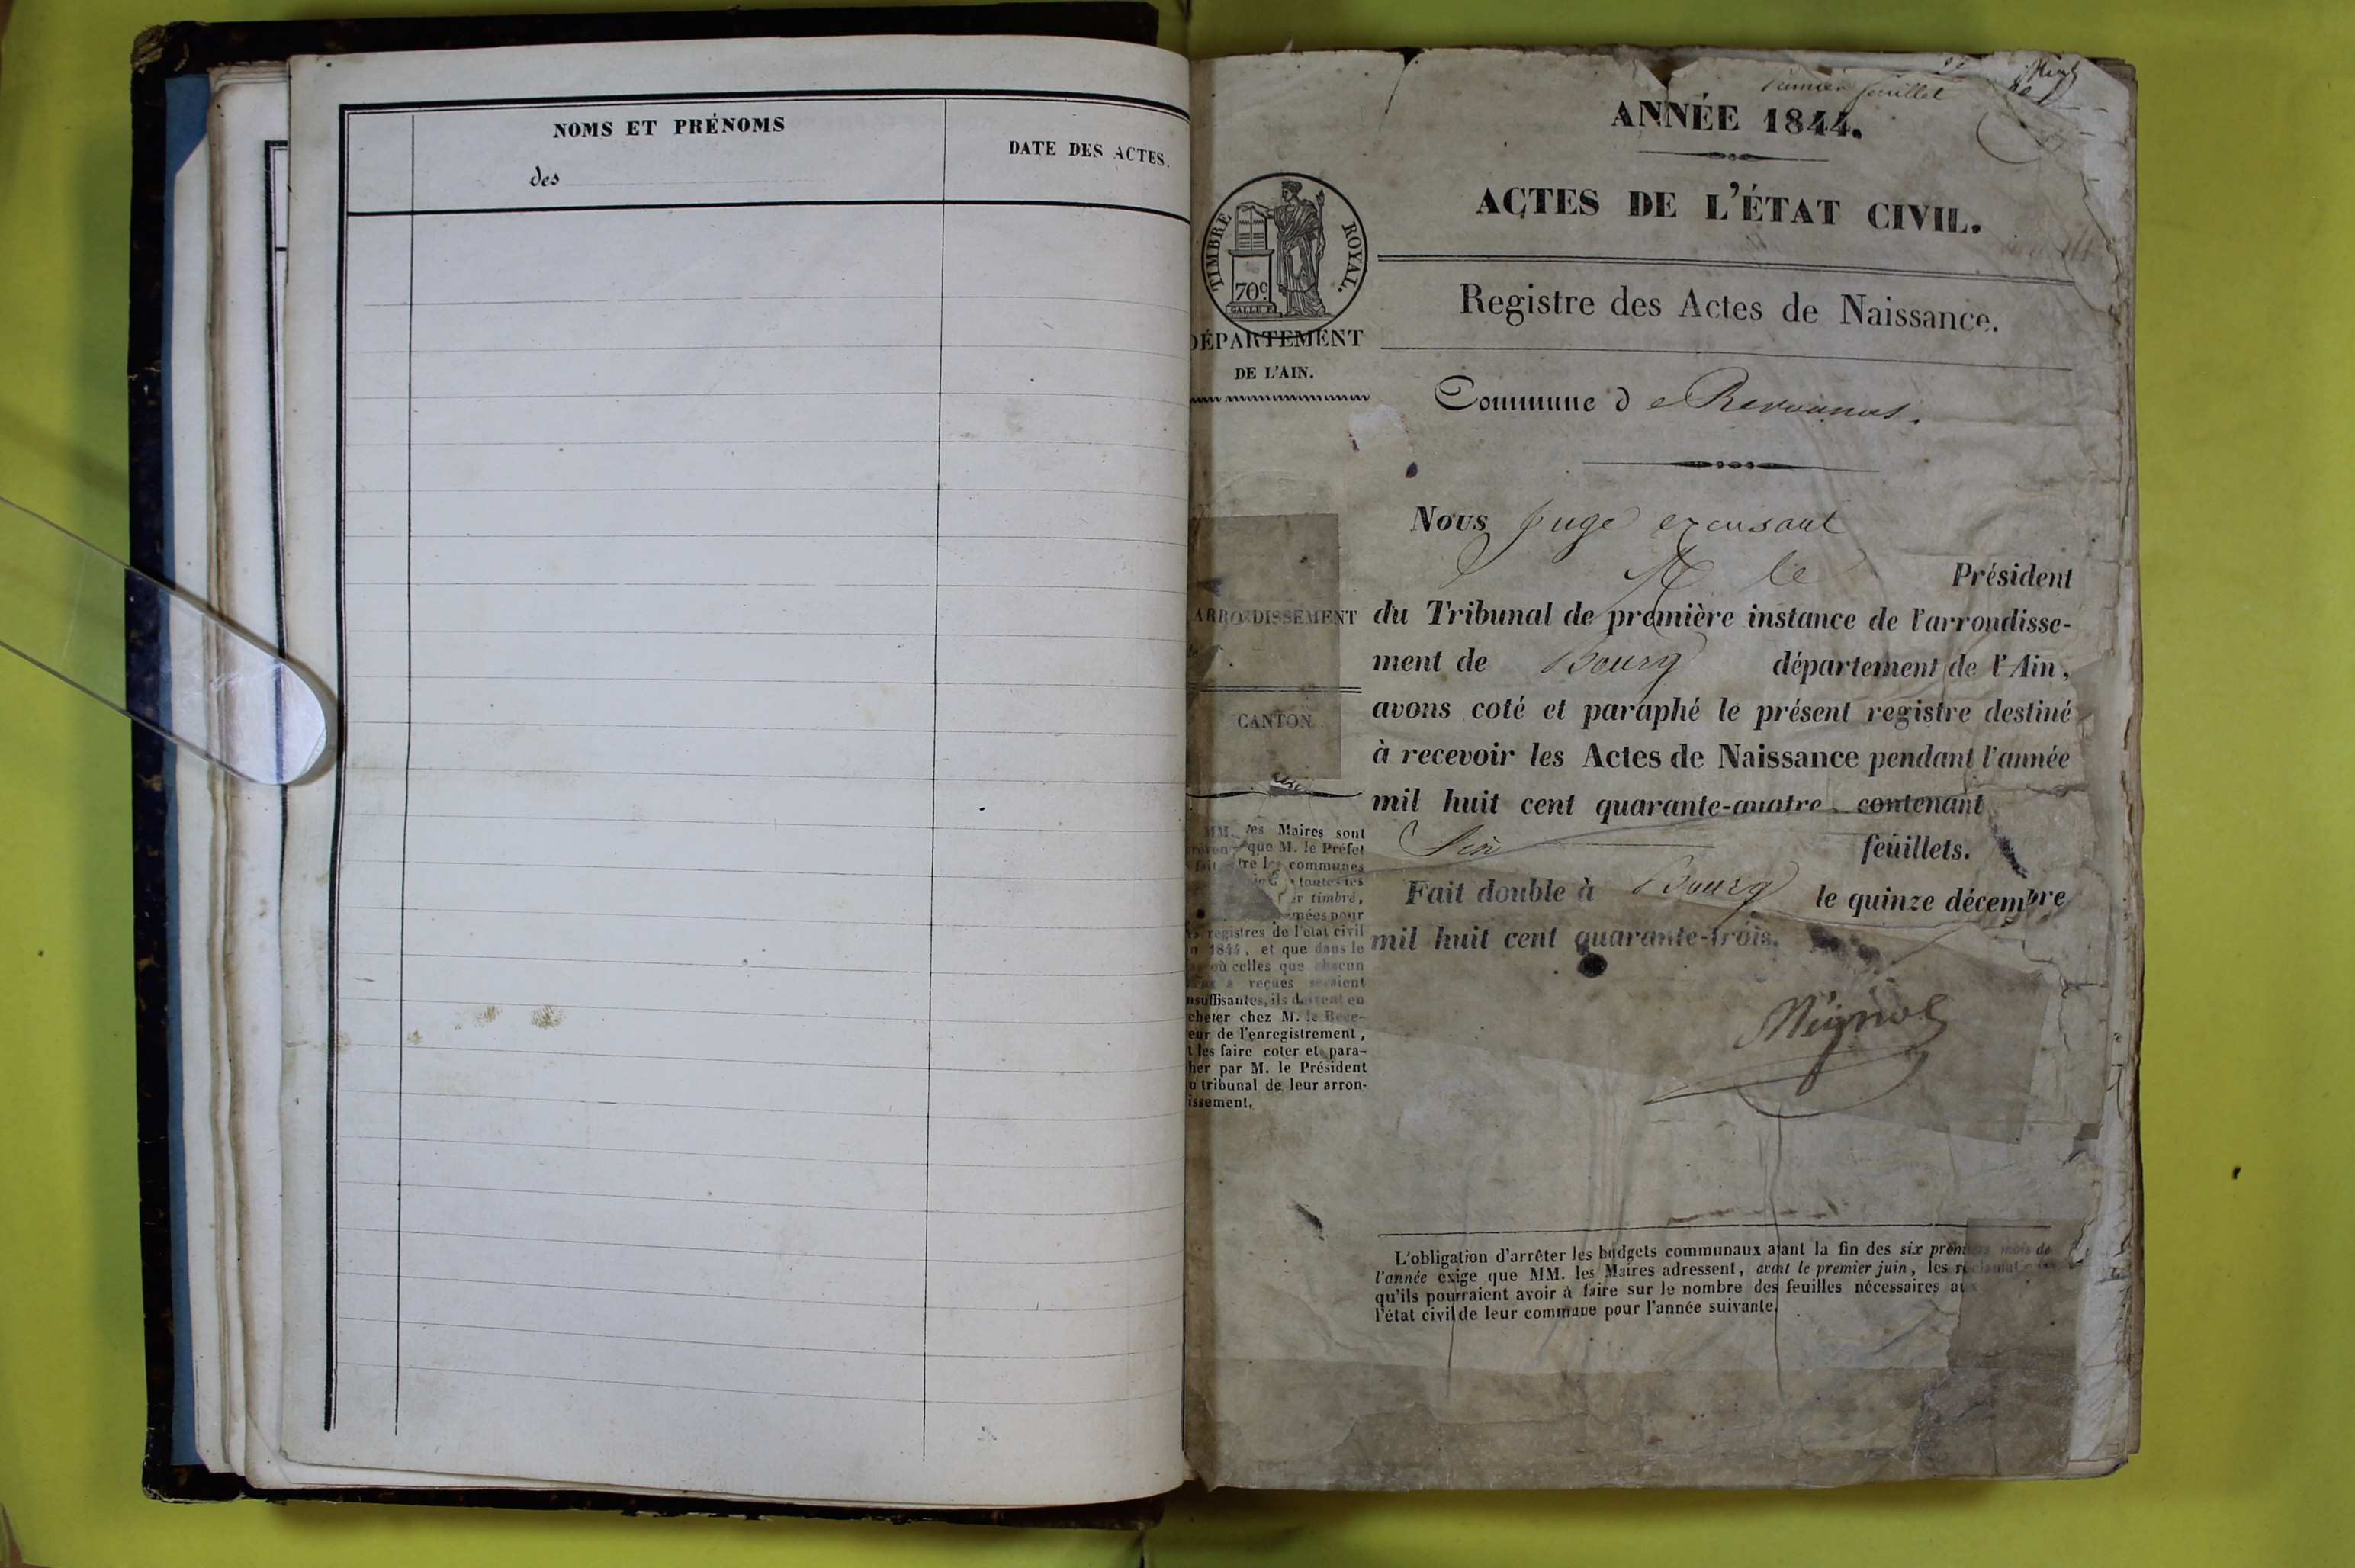 NOMS ET PRÉNOMS
des
DATE DES ACTES.
Premier feuillet
ANNÉE 1844.
ACTES DE L'ÉTAT CIVIL.
TIMBRE ROYAL.
70c
GALLE F.
Registre des Actes de Naissance.
DÉPARTEMENT
DE L'AIN.
Commune de
Nous Juge
M le Président
ARRONDISSEMENT
du Tribunal de première instance de l'arrondisse-
ment de Bourg département de l'Ain,
avons coté et paraphé le présent registre destiné
CANTON
à recevoir les Actes de Naissance pendant l'année
mil huit cent quarante-quatre, contenant
feuillets.
Fait double à Bourg le quinze décembre
mil huit cent quarante-trois.
MM. les Maires sont
que M. le Préfet
communes
toutes les
timbré,
pour
registres de l'état civil
1844, et que dans le
où celles que chacun
reçues seraient
nsuffisantes, ils doivent en
cheter chez M. le Rece-
eur de l'enregistrement,
t les faire coter et para-
her par M. le Président
u tribunal de leur arron-
issement.
L'obligation d'arrêter les budgets communaux avant la fin des six premiers mois de
l'année exige que MM. les Maires adressent, avant le premier juin, les
qu'ils pourraient avoir à faire sur le nombre des feuilles nécessaires aux
l'état civil de leur commune pour l'année suivante.